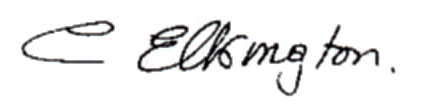 C Elkington.